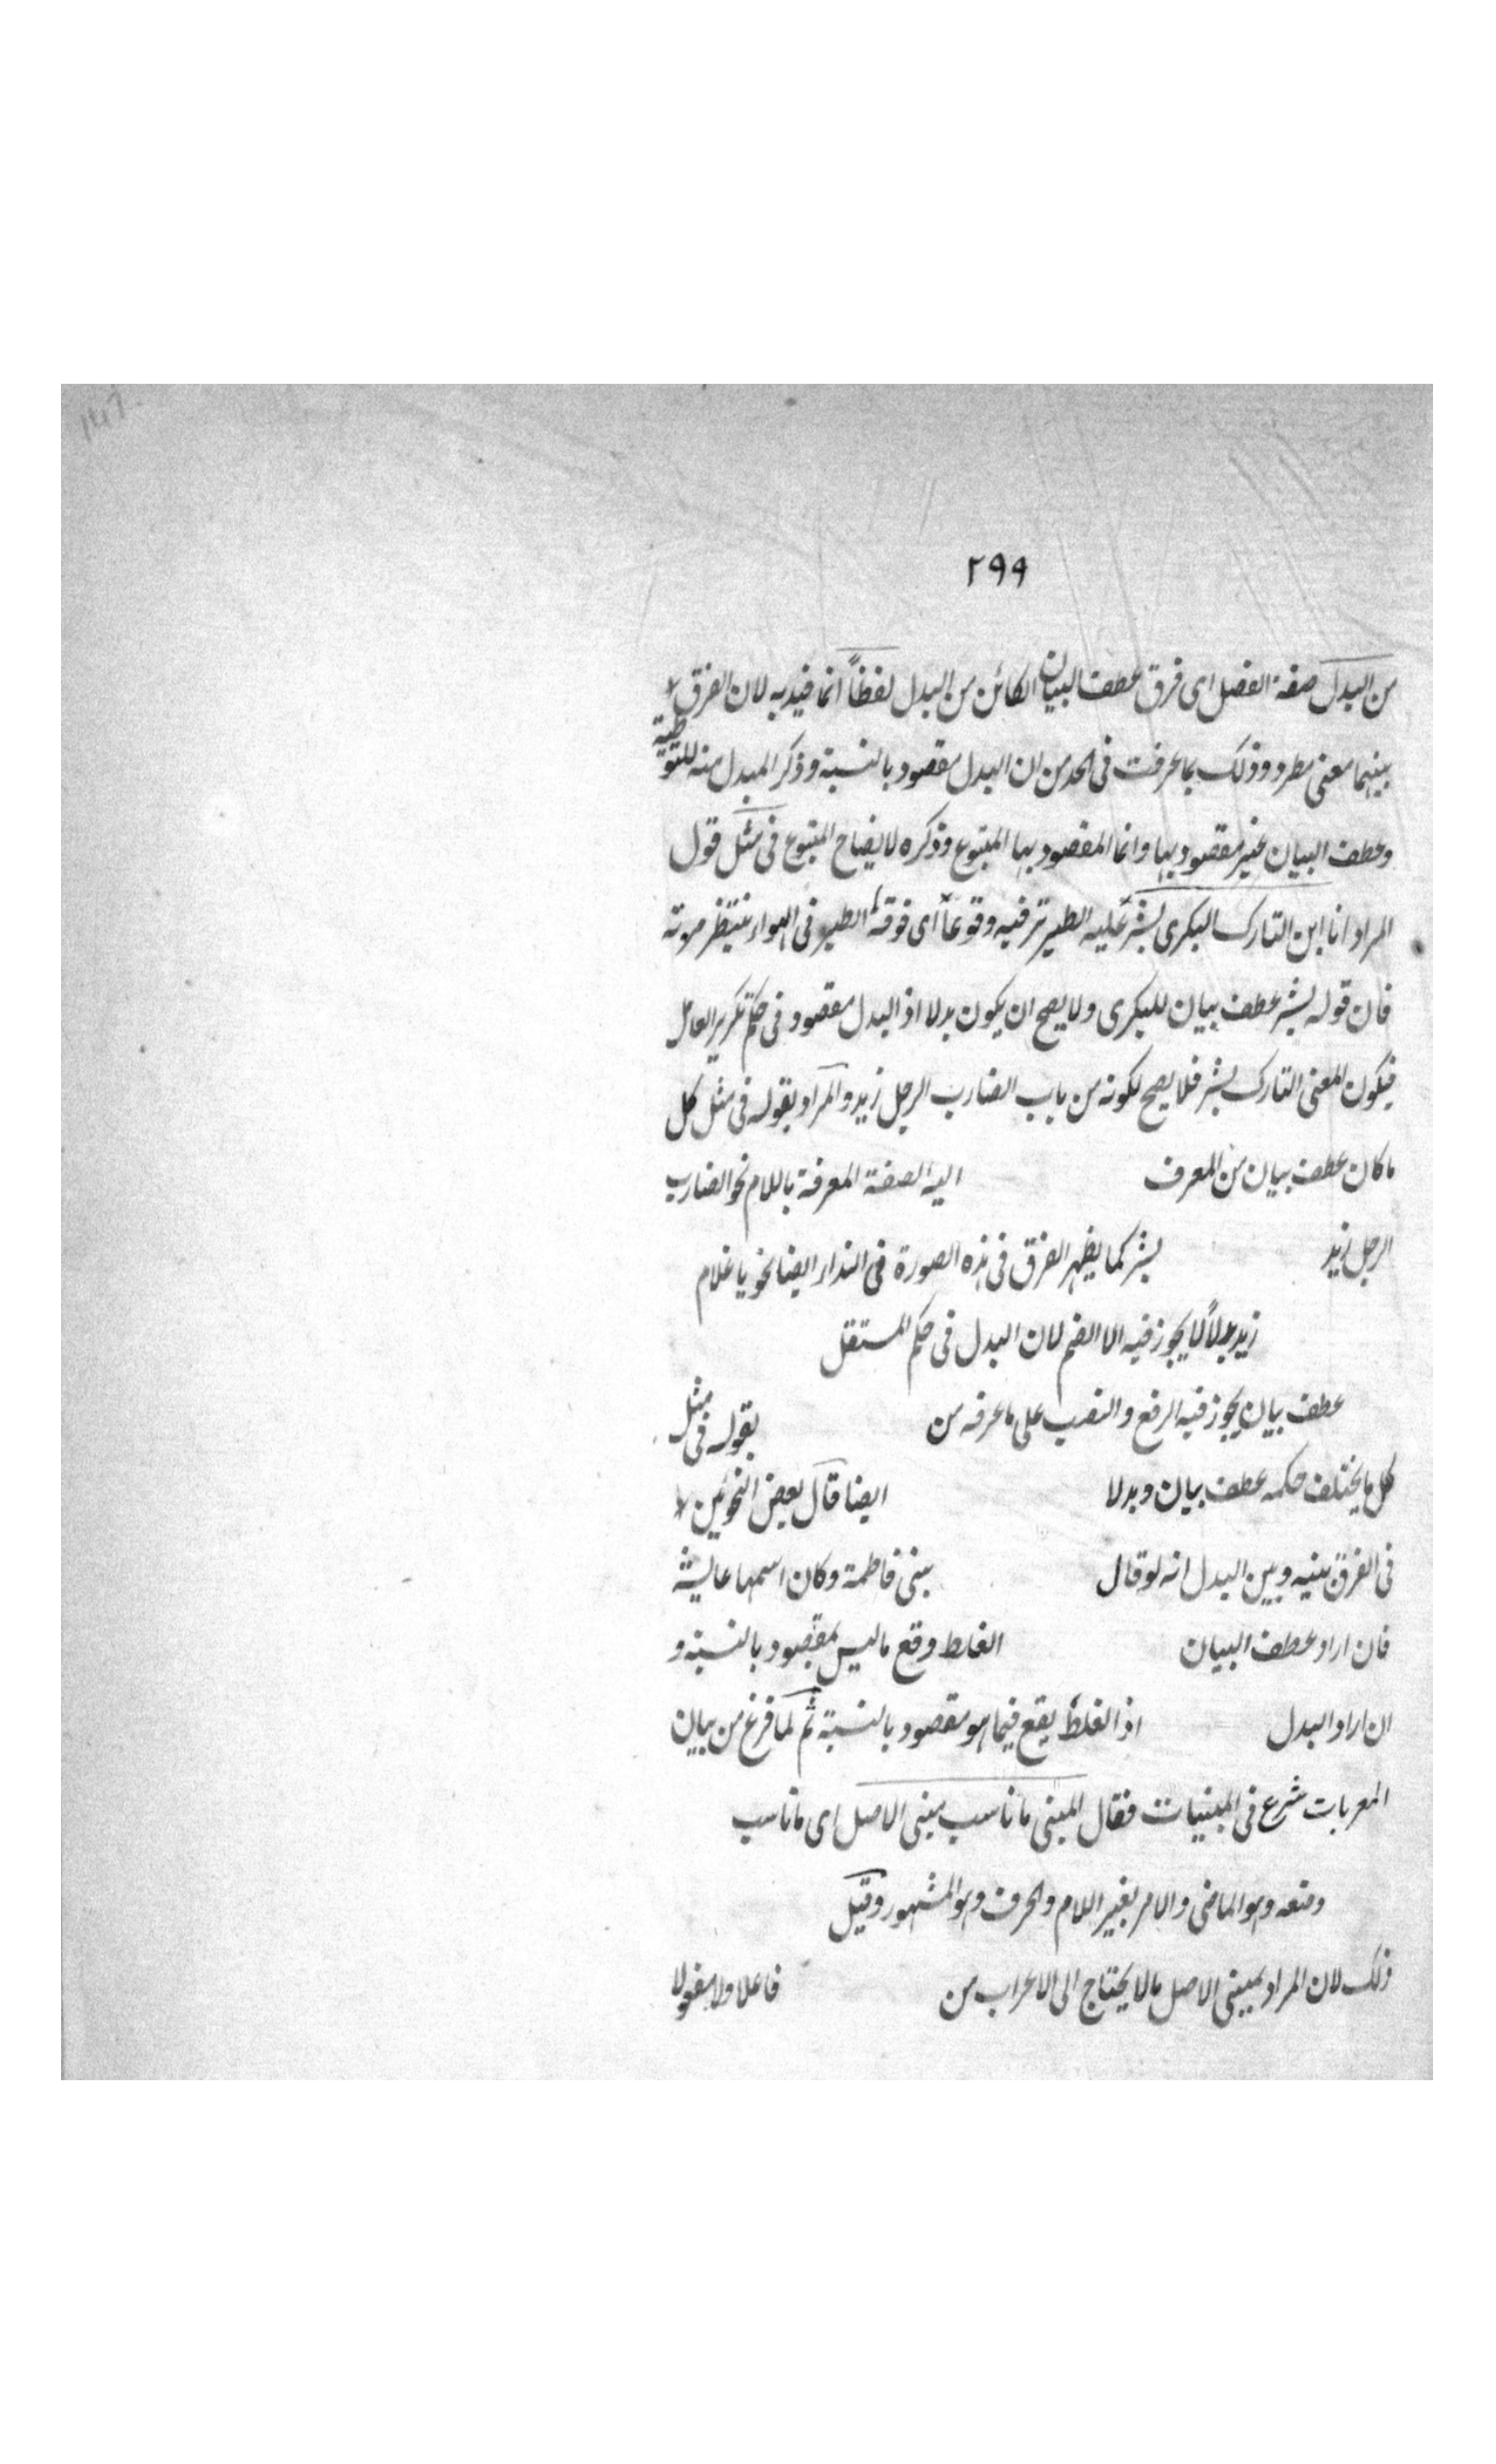 ٢٩٩
من البدل صفة الفصل اى فرق عطف البيان الكائن من البدل لفظاً انما قيد به لان الفرق
بينهما معنى مطرد وذلك بما عرفت فى الحد من ان البدل مقصود بالنسبة وذكر المبدل منه للتوطية
وعطف البيان غير مقصود بها وانما المقصود بها المتبوع وذكره لايضاح المتبوع فى مثل قول
المراد انا ابن التارك البكرى بشر عليه الطير ترقبه وقوعاً اى فوقه الطير فى الهواء ينتظر موته
فان قوله بشر عطف بيان للبكرى ولا يصح ان يكون بدلا اذ البدل مقصود فى حكم تكرير العامل
فيكون المعنى التارك بشر فلا يصح لكونه من باب الضارب الرجل زيد والمراد بقوله فى مثل كل
ما كان عطف بيان من المعرف اليه الصفة المعرفة باللام نحو الضارب
الرجل زيد بشر كما يظهر الفرق فى هذه الصورة فى النداء ايضا نحو يا غلام
زيد بدلاً لا يجوز فيه الا الضم لان البدل فى حكم المستقل
عطف بيان يجوز فيه الرفع والنصب على ما عرفه من بقوله فى مثل
كل ما يختلف حكمه عطف بيان وبدلا ايضا قال بعض النحوئين
فى الفرق بينه وبين البدل انه لو قال بنتى فاطمة وكان اسمها عايشة
فان اراد عطف البيان الغلط وقع ما ليس بمقصود بالنسبة و
ان اراد البدل اذ الغلط يقع فيما هو مقصود بالنسبة ثم لما فرغ من بيان
المعربات شرع فى المبنيات فقال المبنى ما ناسب مبنى الاصل اى ما ناسب
وضعه وهو الماضى والامر بغير اللام والحرف وهو المشهور وقيل
ذلك لان المراد بمبنى الاصل ما لا يحتاج الى الاعراب من فاعلا ولا مفعولا